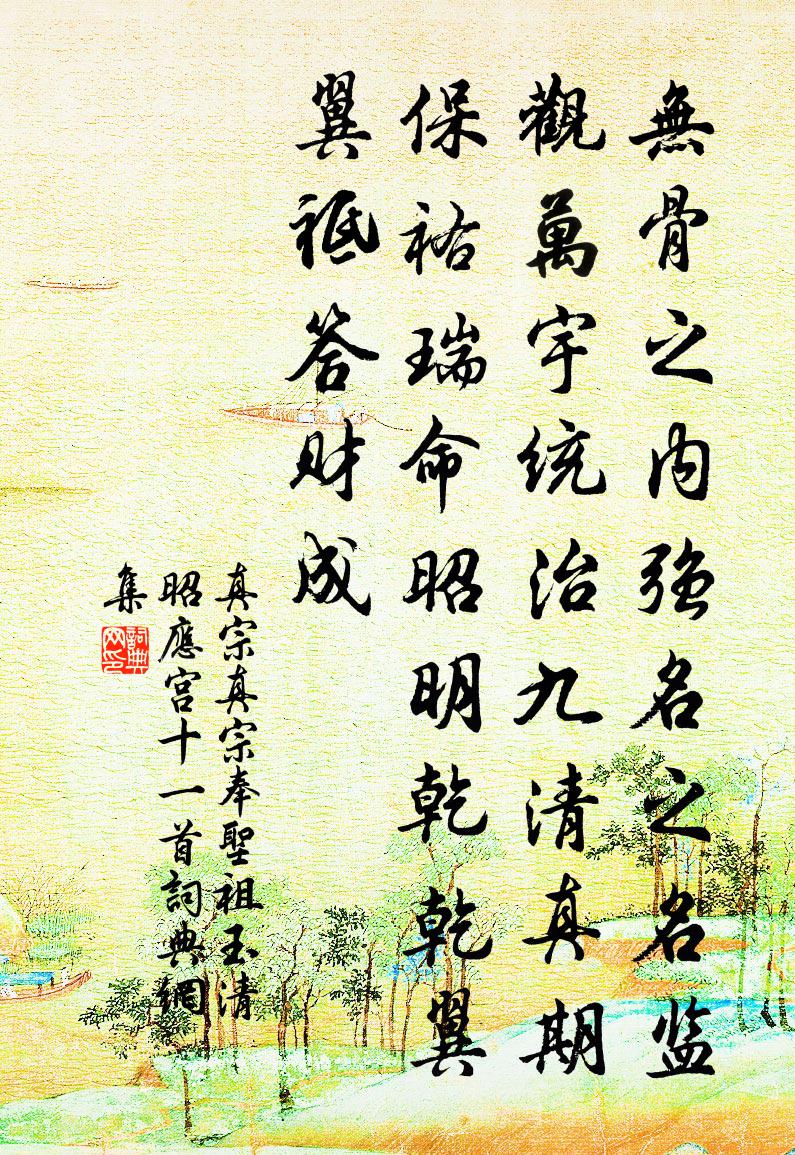 無骨之内强名之名监
觀萬宇統治九清真期
保祐瑞命昭明乾乾翼
翼祗答财成
真宗真宗奉聖祖玉清
昭應宫十一首詞典網
集
詞典网印